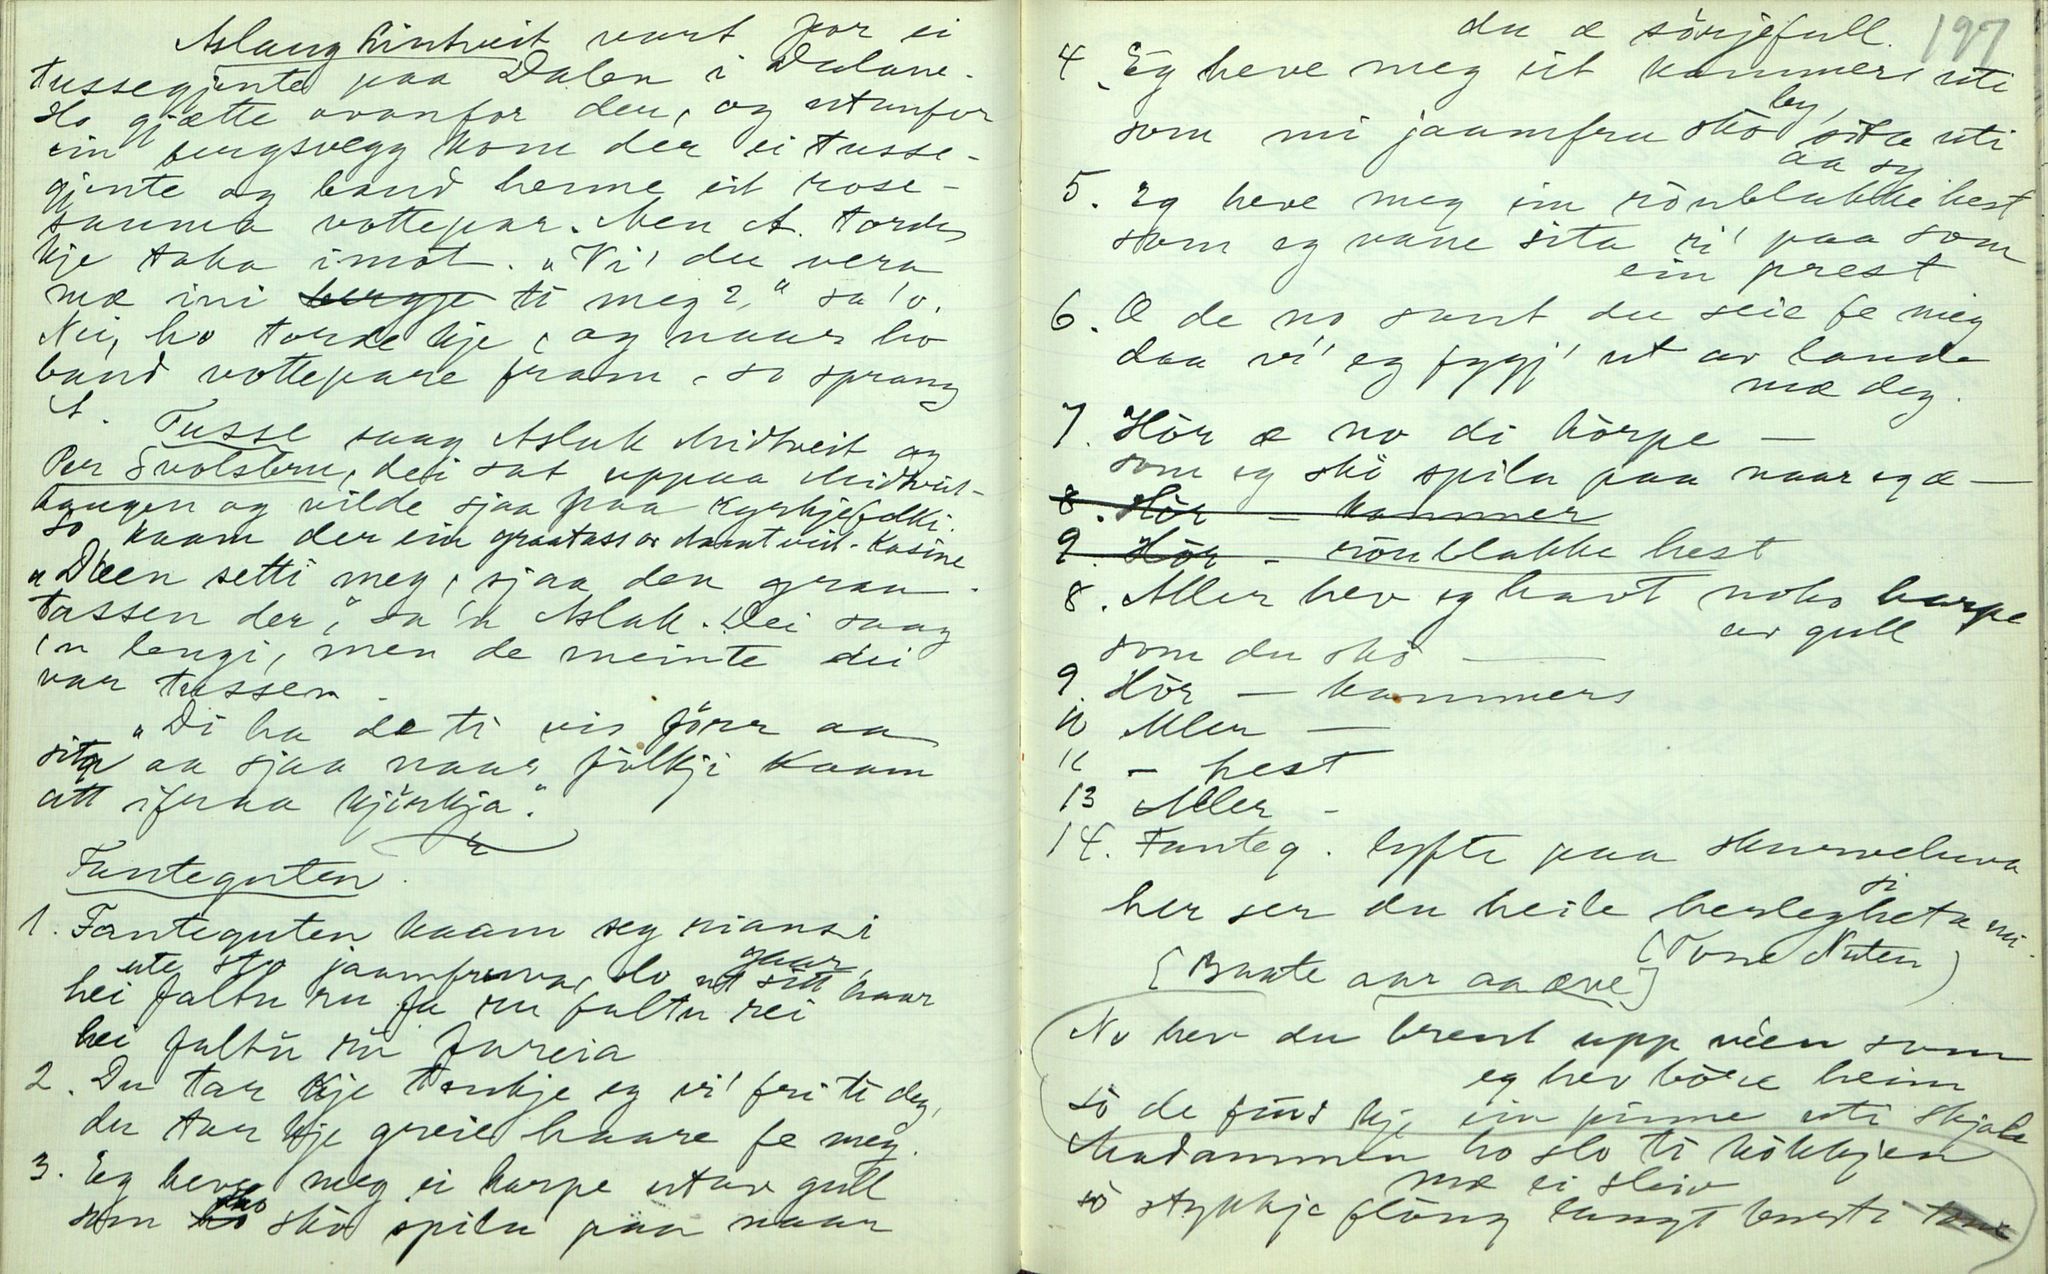 Aslaug Lintveit vart for ei
tussegjente paa Dalen i Dalane.
Ho gjætte ovanfor der, og utanfor
ein bergsvegg kom der ei tusse-
gjente og baud henne eit rose-
sauma vottepar. Men A. tordes
kje taka imot. "Vi' du vera
mæ ini bergje ti meg?" sa 'o.
Nei, ho torde kje, og naar ho
baud vottepare fram, so sprang
A.
Tusse saag Aslak Midtveit og
Per Svolstru, dei sat uppaa Midtveit-
haugen og vilde sjaa paa kyrkjefolki.
So kaam der ein graatass av
"Deen setti meg, sjaa den graa-
tassen der," sa 'n Aslak. Dei saag
'n lengi, men de meinte dei
var tussen.
"Di ha de ti vis förr aa
sita aa sjaa naar fölkji kaam
att ifraa kjörkja".
Fanteguten.
1. Fanteguten kaam seg rians i
gaar,
ute sto jaamfruva, slo ut sitt haar
hei faltu ru fa ru faltu rei
hei faltu ru fareia
2. Du tar kje tenkje eg vi' fri ti deg,
du tar kje greie haare fe meg.
3. Eg heve meg ei harpe utav gull
som ho sko spila paa naar
197
du æ sörjefull.
4. Eg heve meg eit kammers uti
som mi jaamfru sko sita uti
aa sy
5. Eg heve meg ein rönblakke hest
som eg vane sita ri' paa som
ein prest
6. Æ de no sant du seie fe meg
daa vi' eg fygj' ut av lande
mæ deg.
7. Hör æ no di hörpe —
som eg skö spila paa naar eg æ —
8. Hör — kammer
9. Hör - rönblakke hest
8. Aller hev eg havt noko harpe
av gull
som du skö —
9. Hör — kammers
10 Aller —
11 - hest
13 Aller -
14. Fanteg. lyfte paa skurvehuva
her ser du heile herlegheta mi.
(Tone Nuten)
[Baate aar aa æve]
No hev du brent upp véen som
eg hev böre heim
sö de finds kje ein pinne uti skjale
Madammen ho slo ti kökkjen
mæ ei sleiv
sö stykkje flöug langt burti